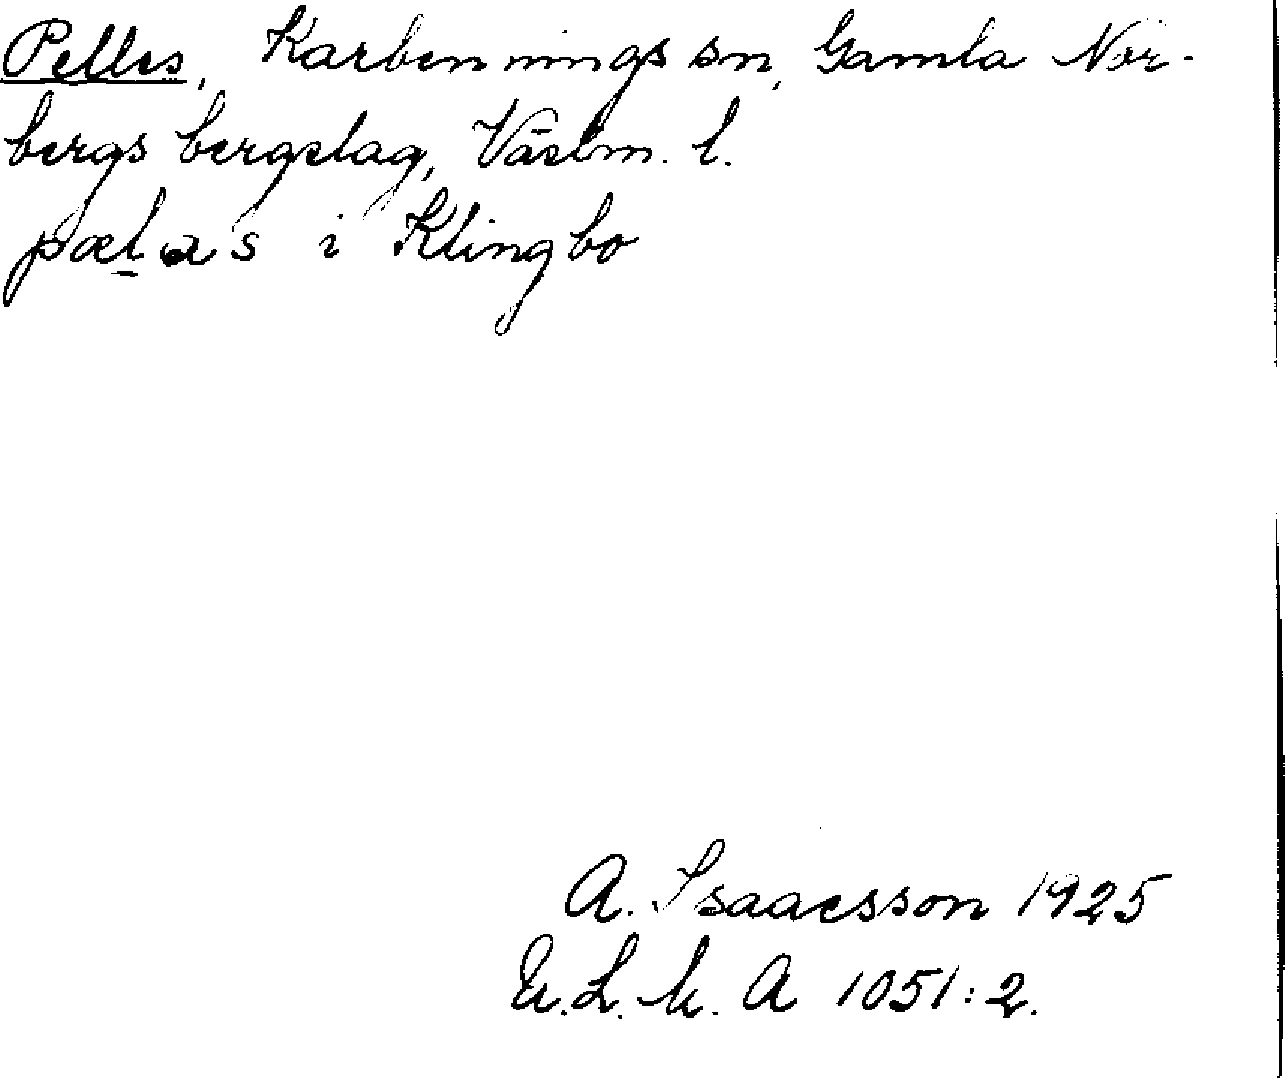 Pelles, Karbennings sn, Gamla Nor-
bergs bergslag, Västm. l.
pælas i Klingbo
A. Isaacsson 1925
U.L.A. A 1051:2.